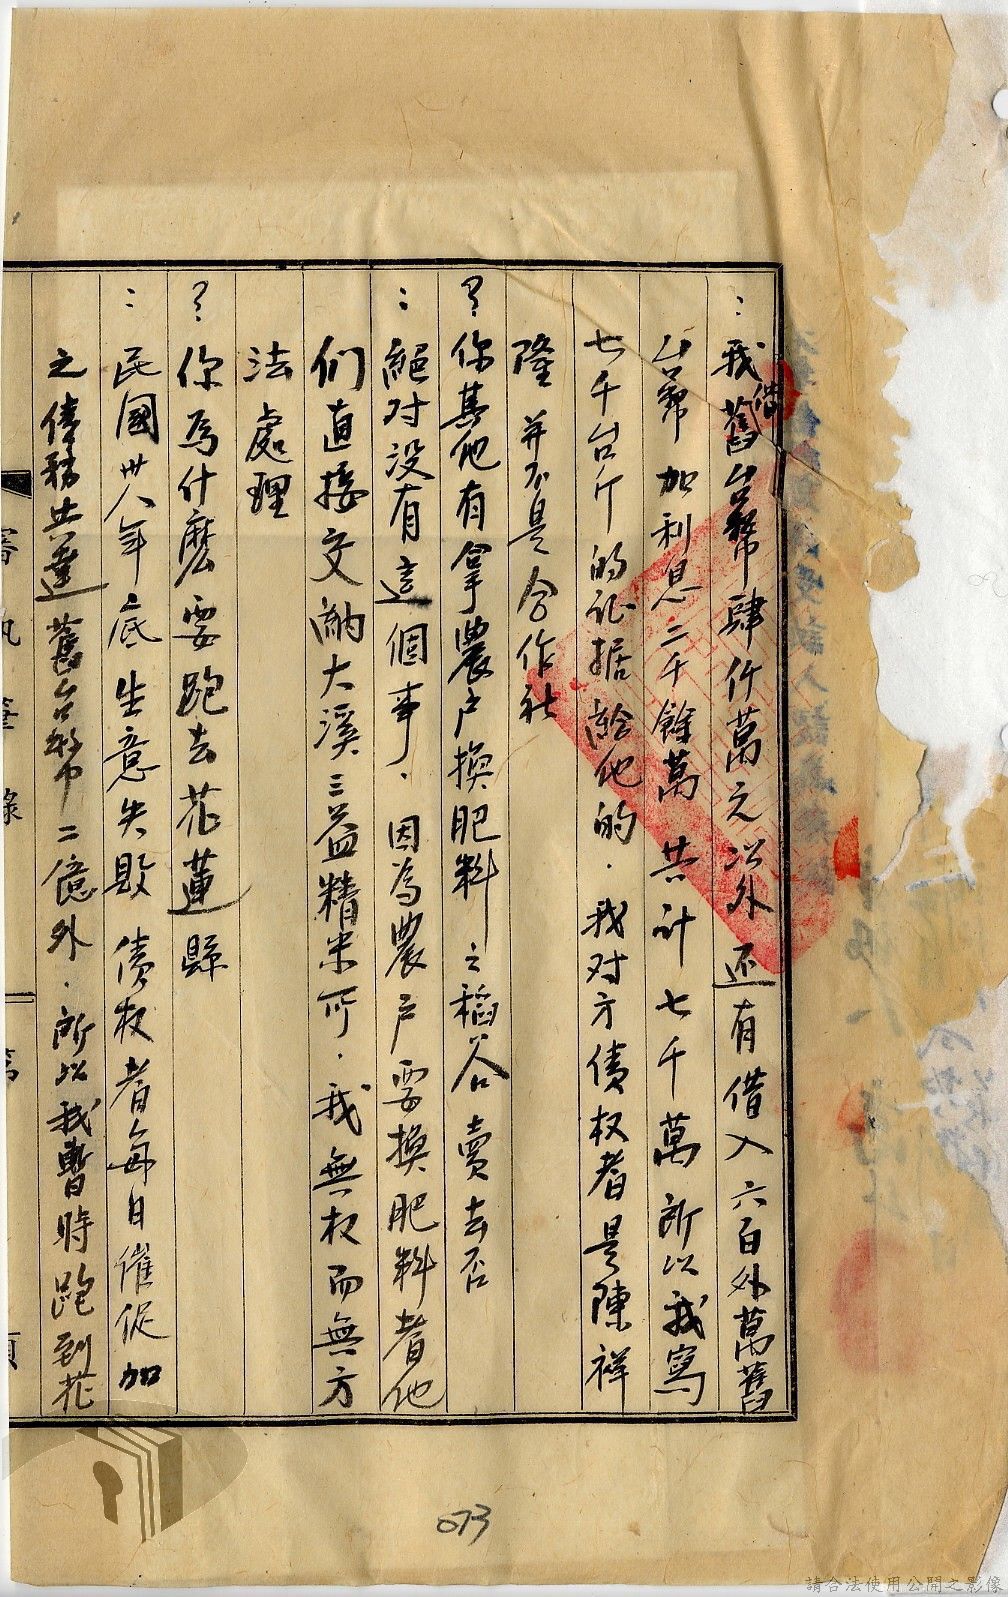 ：我借舊台幣肆仟萬元以外还有借入六百外萬舊
台幣加利息二千餘萬共计七千萬所以我寫
七千台斤的证据給他的．我对方债权者是陳祥
隆并不是合作社
？你其他有拿農户換肥料之稻谷賣去否
：絕对没有這個事．因為農户要換肥料者他
们直接交納大溪三益精米所．我無权而無方
法處理
？你為什麽要跑去花蓮縣
：民國卅八年底生意失敗债权者每日催促加
之债務共達舊台幣二億外．所以我暫時跑到花
審訊筆錄
第
頁
073
請合法使用公開之影像